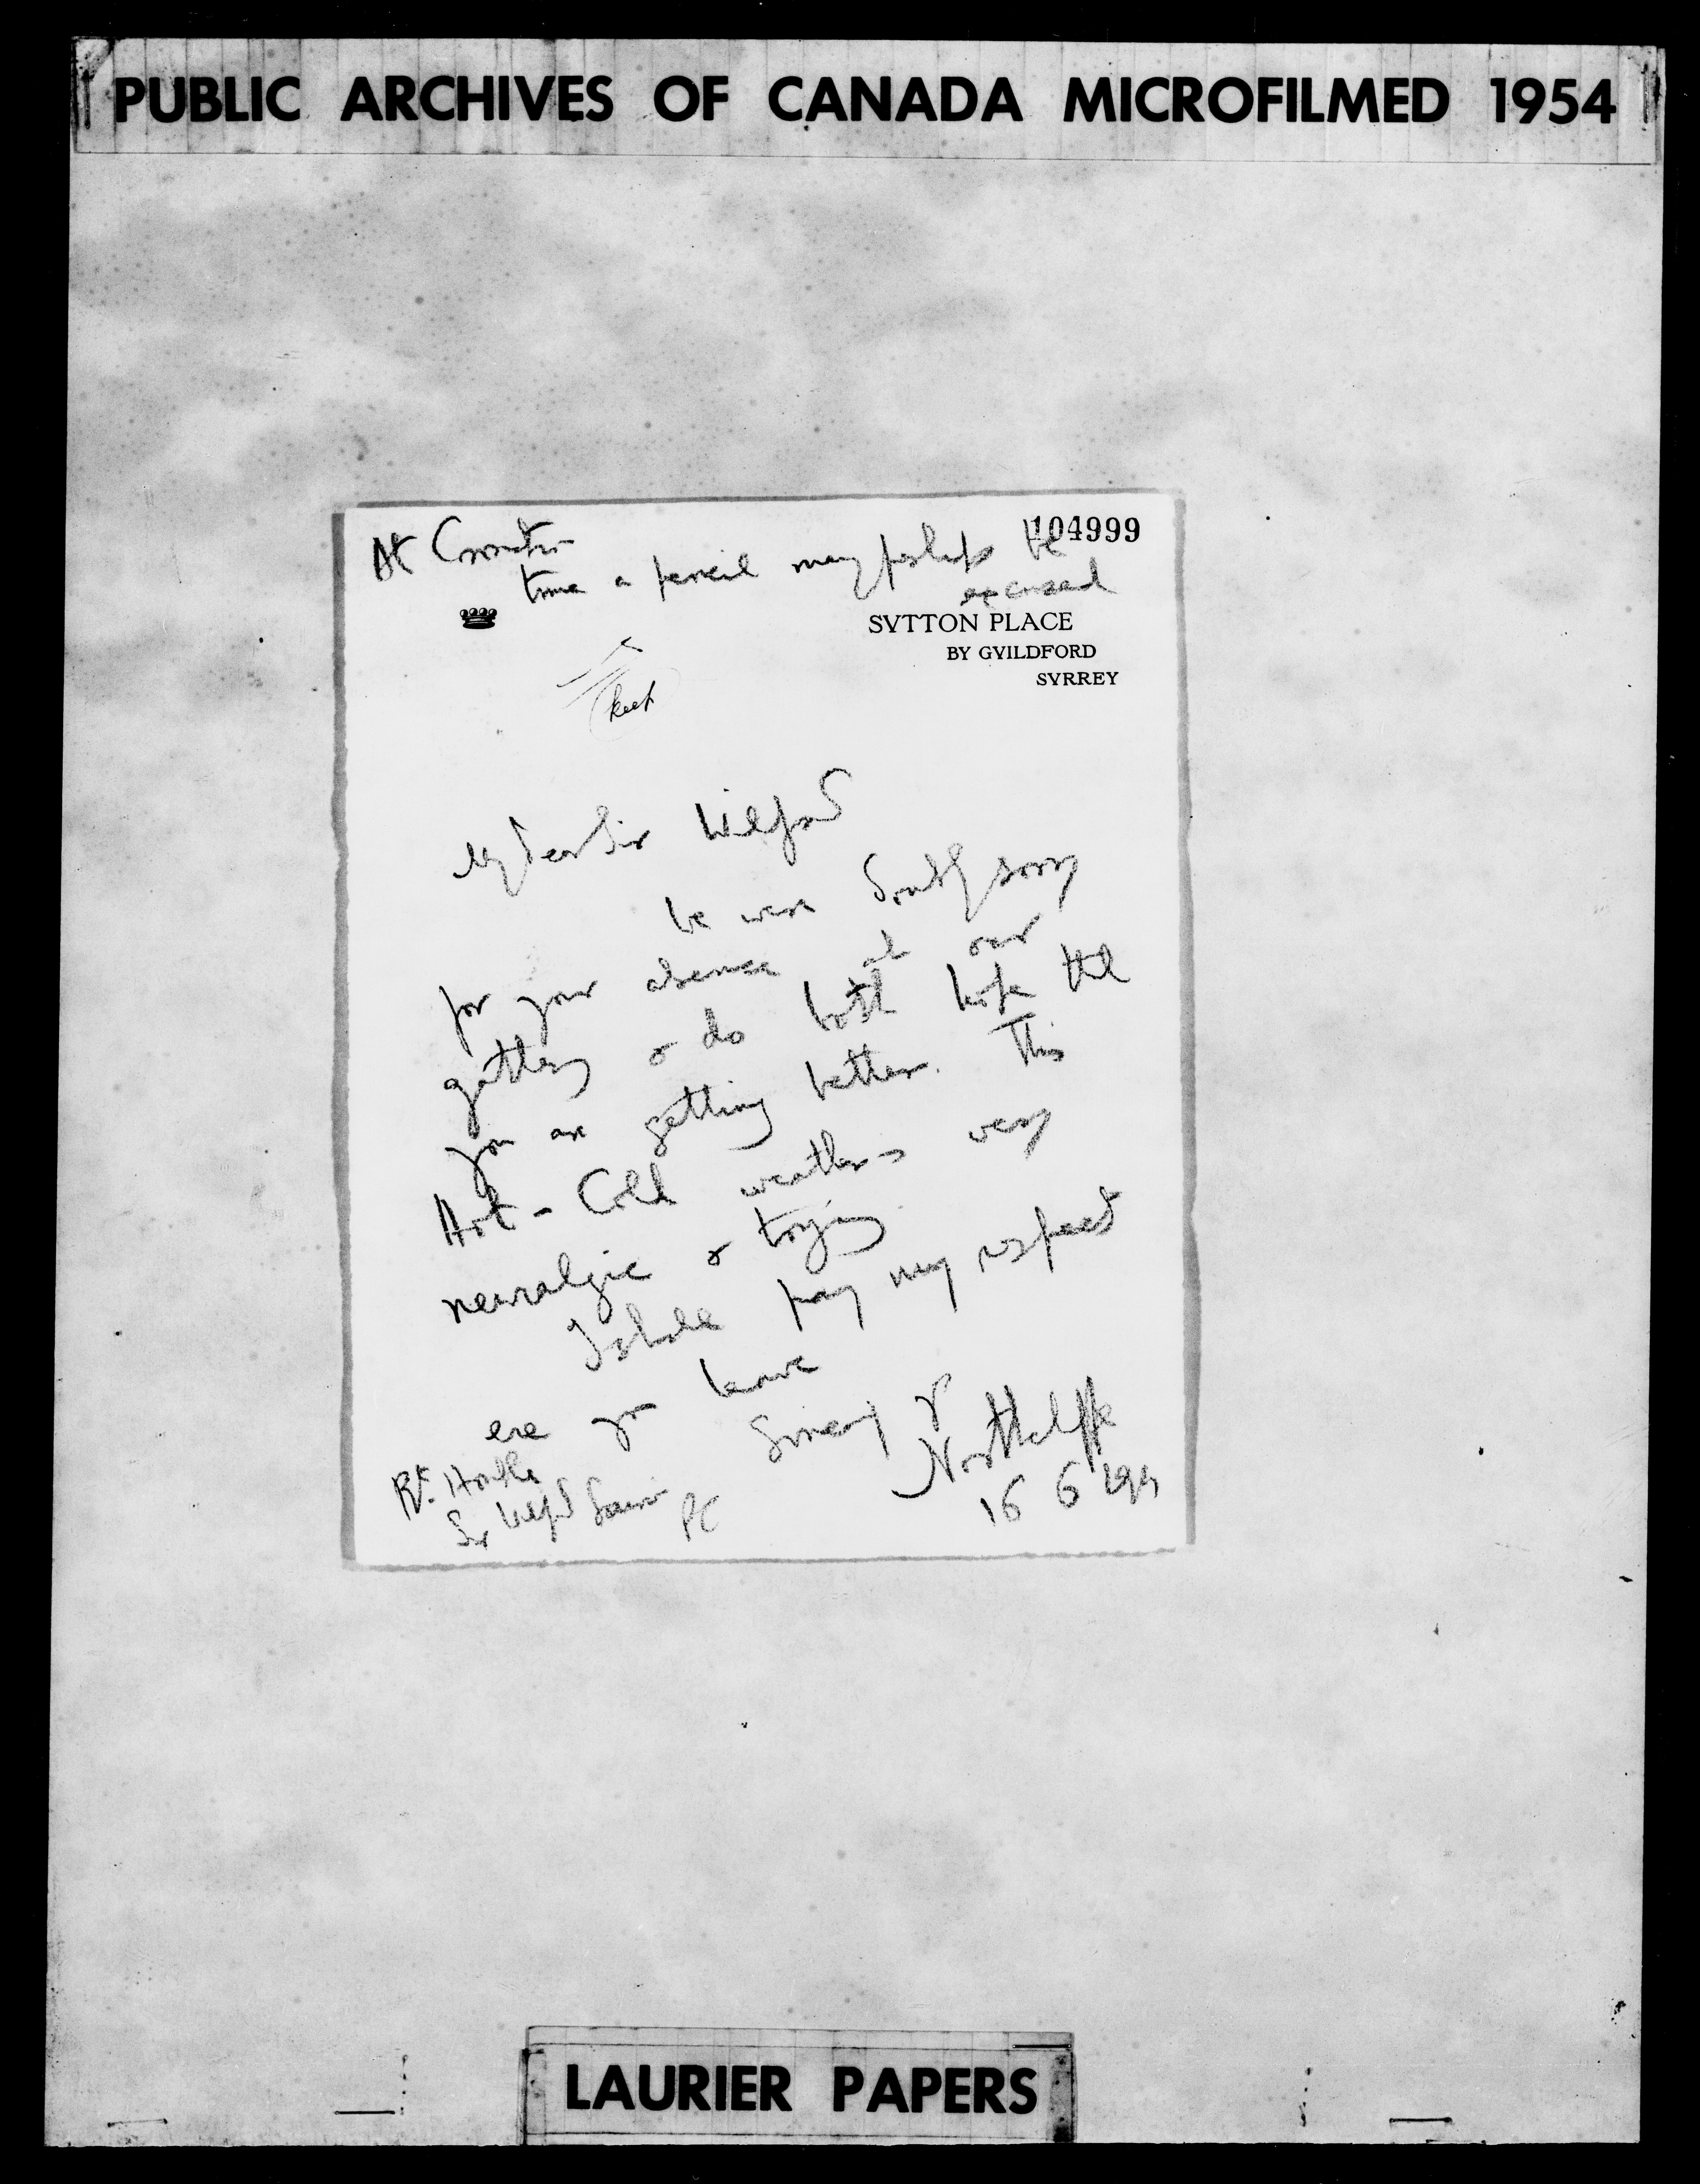 PUBLIC ARCHIVES OF CANADA MICROFILMED 1954
104999
At Coronation
time a pencil may perhaps be
excused
SVTTON PLACE
BY GVILDFORD
SVRREY
My dear Sir Wilfrid
We were doubly sorry
for your absence at our
gathering & do both hope that
you are getting better. This
Hot - Cold weather is very
neuralgic & trying
I shall pay my respects
ere you leave
Sincerely yr
Northcliffe
Rt. Honble
Sir Wilfrid Laurier PC
16 6 1911
LAURIER PAPERS